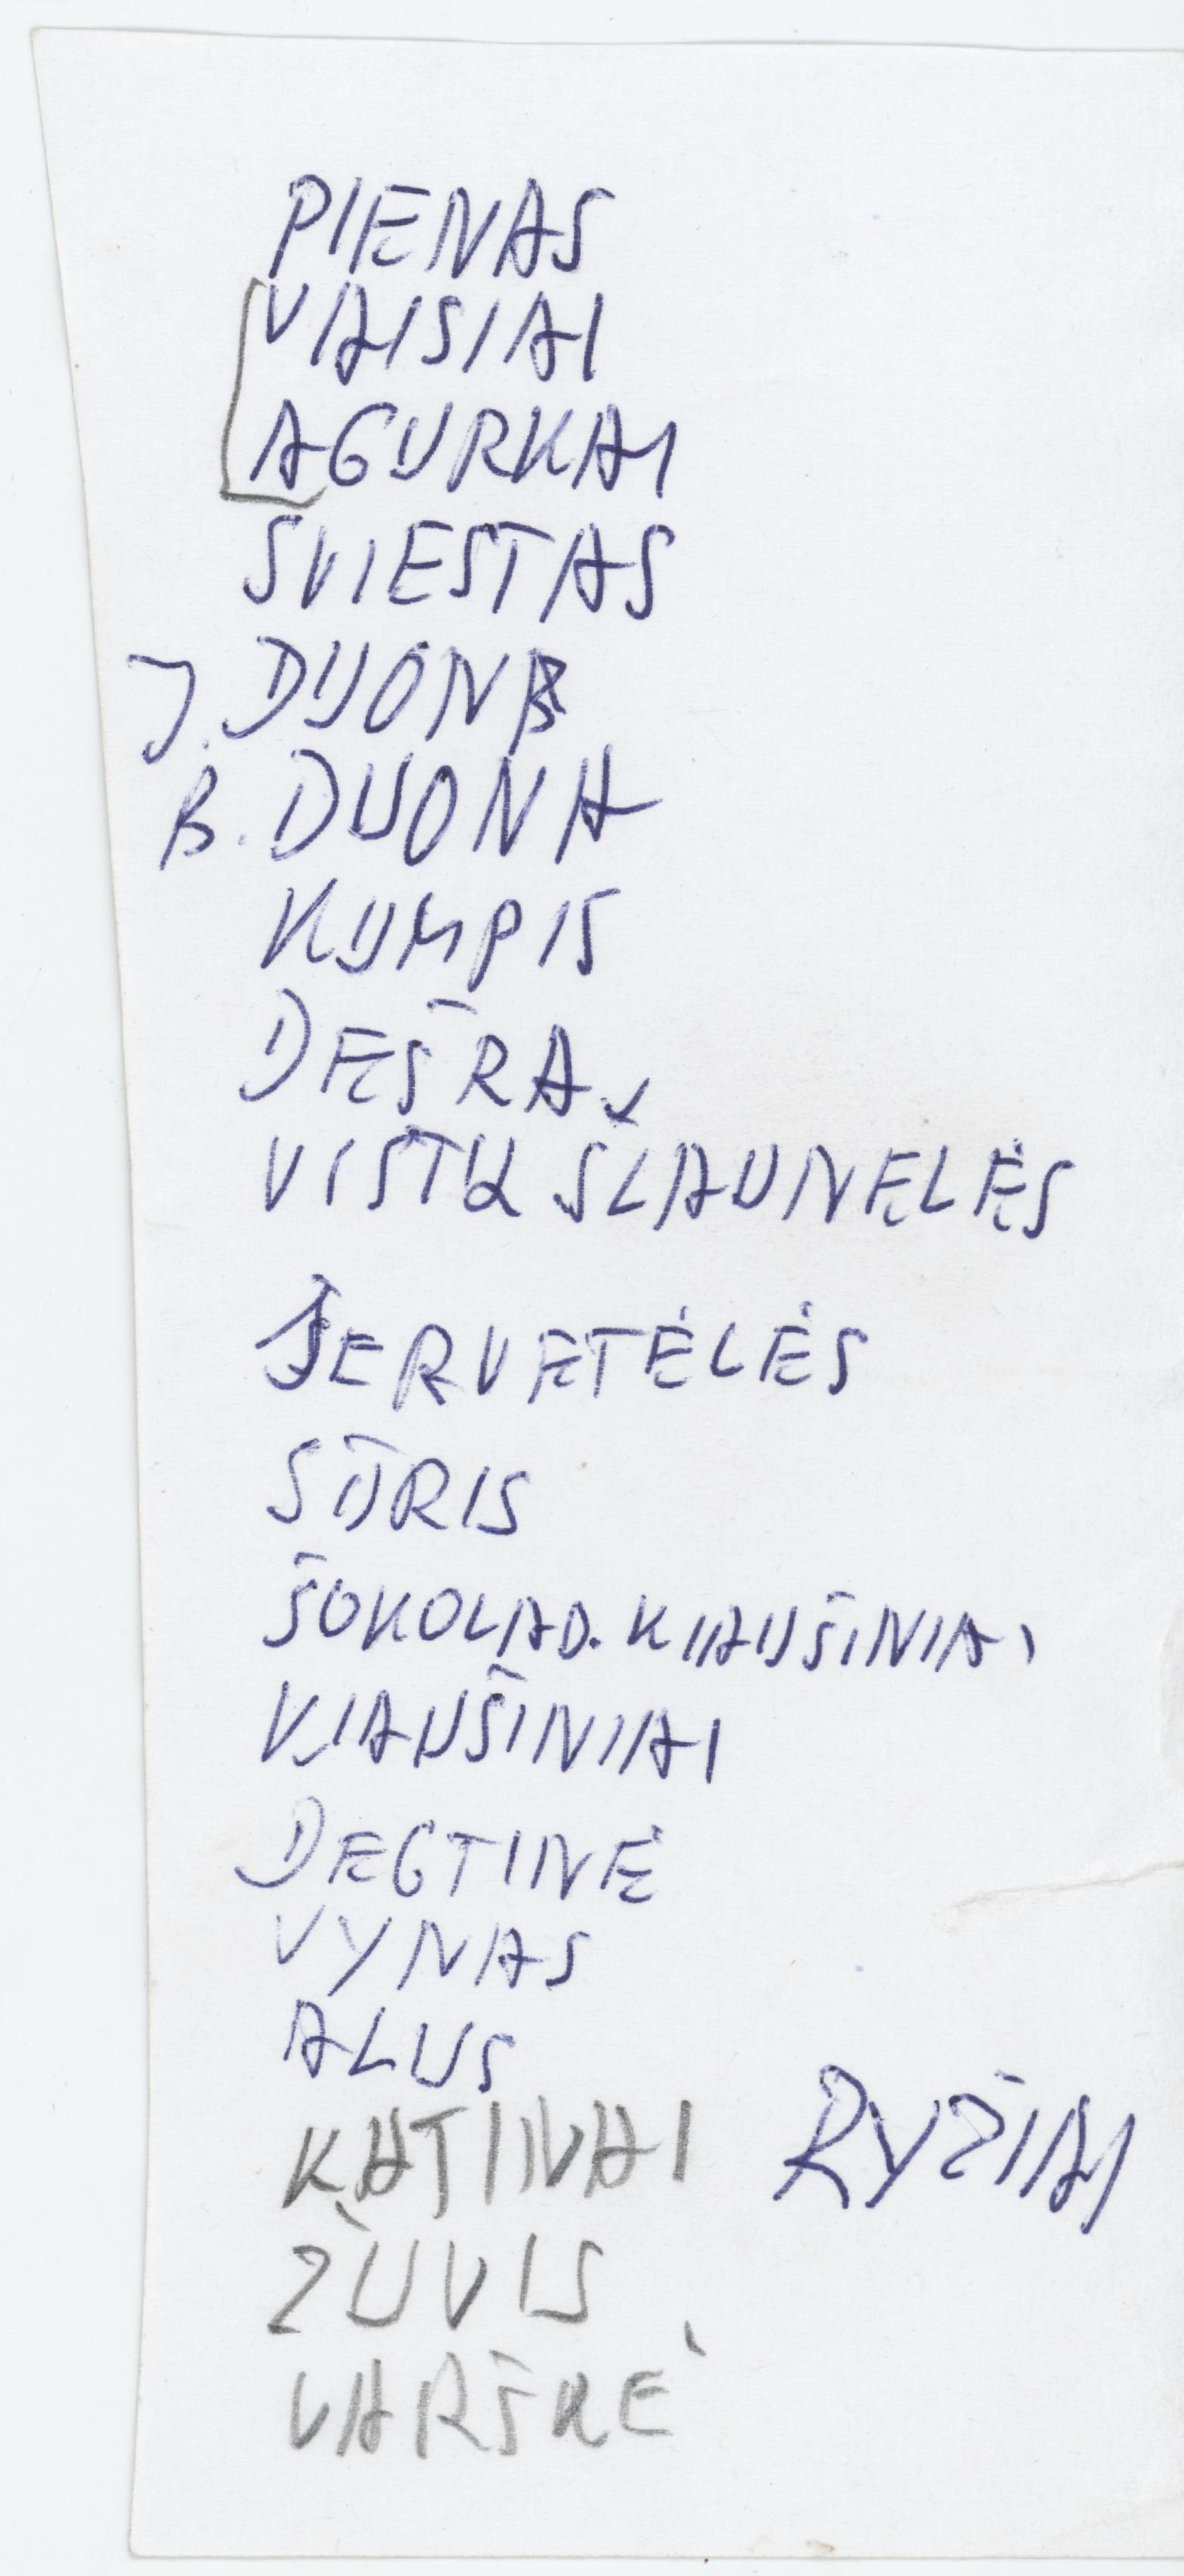 PIENAS
VAISIAI
AGURKAI
SVIESTAS
J. DUONA
B. DUONA
KUMPIS
DEŠRA
VISTŲ ŠLAUNELĖS
SERVETĖLĖS
SŪRIS
ŠOKOLAD. KIAUŠINIAI
KIAUŠINIAI
DEGTINĖ
VYNAS
ALUS
KATINAI RYŽIAI
ŽUVIS
VARŠKĖ